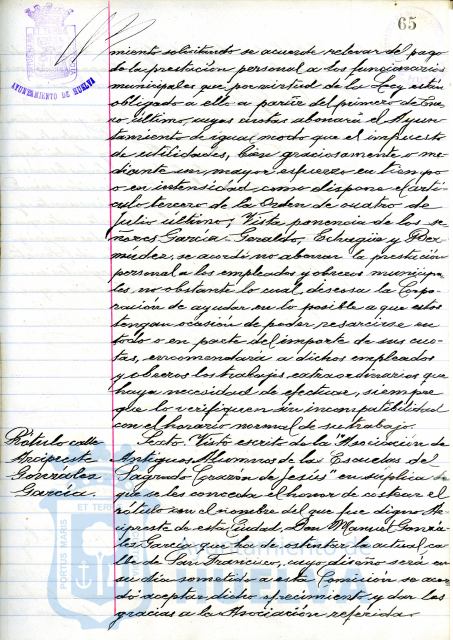 65
AYUNTAMIENTO DE HUELVA
miento solicitando se acuerde relevar del pago
de la prestación personal a los funcionarios
municipales que por virtud de la Ley están
obligado a ello a partir del primero de Ene-
ro último, cuyas cuotas abonaría el Ayun-
tamiento de igual modo que el impuesto
de utilidades, bien graciosamente o me-
diante un mayor esfuerzo en tiempo
o en intensidad como dispone el artí-
culo tercero de la Orden de cuatro de
Julio último; Vista ponencia de los se-
ñores García-Geraldo, Echagüe y Ber-
múdez, se acordó no abonar la prestación
personal a los empleados y obreros municipa-
les, no obstante lo cual, deseosa la Corpo-
ración de ayudar en lo posible a que estos
tengan ocasión de poder resarcirse en
todo o en parte del importe de sus cuo-
tas, encomendaría a dichos empleados
y obreros los trabajos extraordinarios que
haya necesidad de efectuar, siempre
que lo verifiquen sin incompatibilidad
con el horario normal de su trabajo.
Rótulo calle
Arcipreste
González
García.
Sexto. Visto escrito de la "Asociación de
Antiguos Alumnos de las Escuelas del
Sagrado Corazón de Jesús" en súplica de
que se les conceda el honor de costear el
rótulo con el nombre del que fue digno Ar-
cipreste de esta Ciudad, Don Manuel Gonzá-
les García que ha de ostentar la actual ca-
lle de San Francisco, cuyo diseño será en
su día sometido a esta Comisión se acor-
dó aceptar dicho ofrecimiento y dar las
gracias a la Asociación referida.
PORTUS MARIS ET TERRÆ
Ayuntamiento de
HUELVA